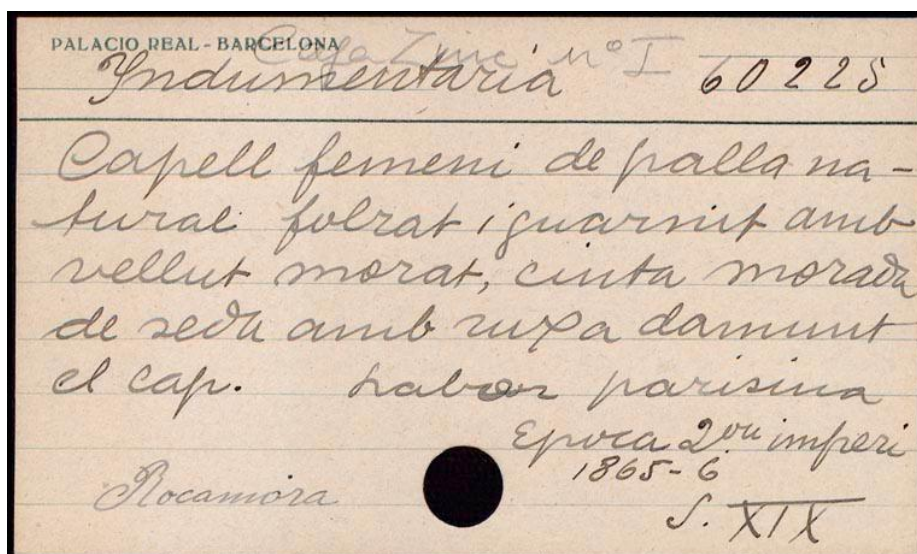 PALACIO REAL - BARCELONA
Caja Zinc nº I
Indumentaria 60225
Capell femeni de palla na-
tural folrat i guarnit amb
vellut morat, cinta morada
de seda amb ruxa damunt
el cap. Labor parisina
Epoca 2on imperi
1865-6
Rocamora
S. XIX